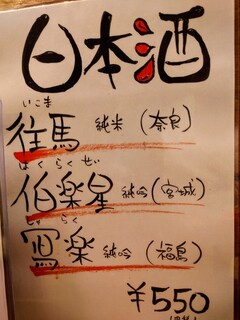 日本酒
いこま
往馬 純米 (奈良)
はくらくせい
伯楽星 純吟 (宮城)
しゃらく
冩楽 純吟 (福島)
¥550